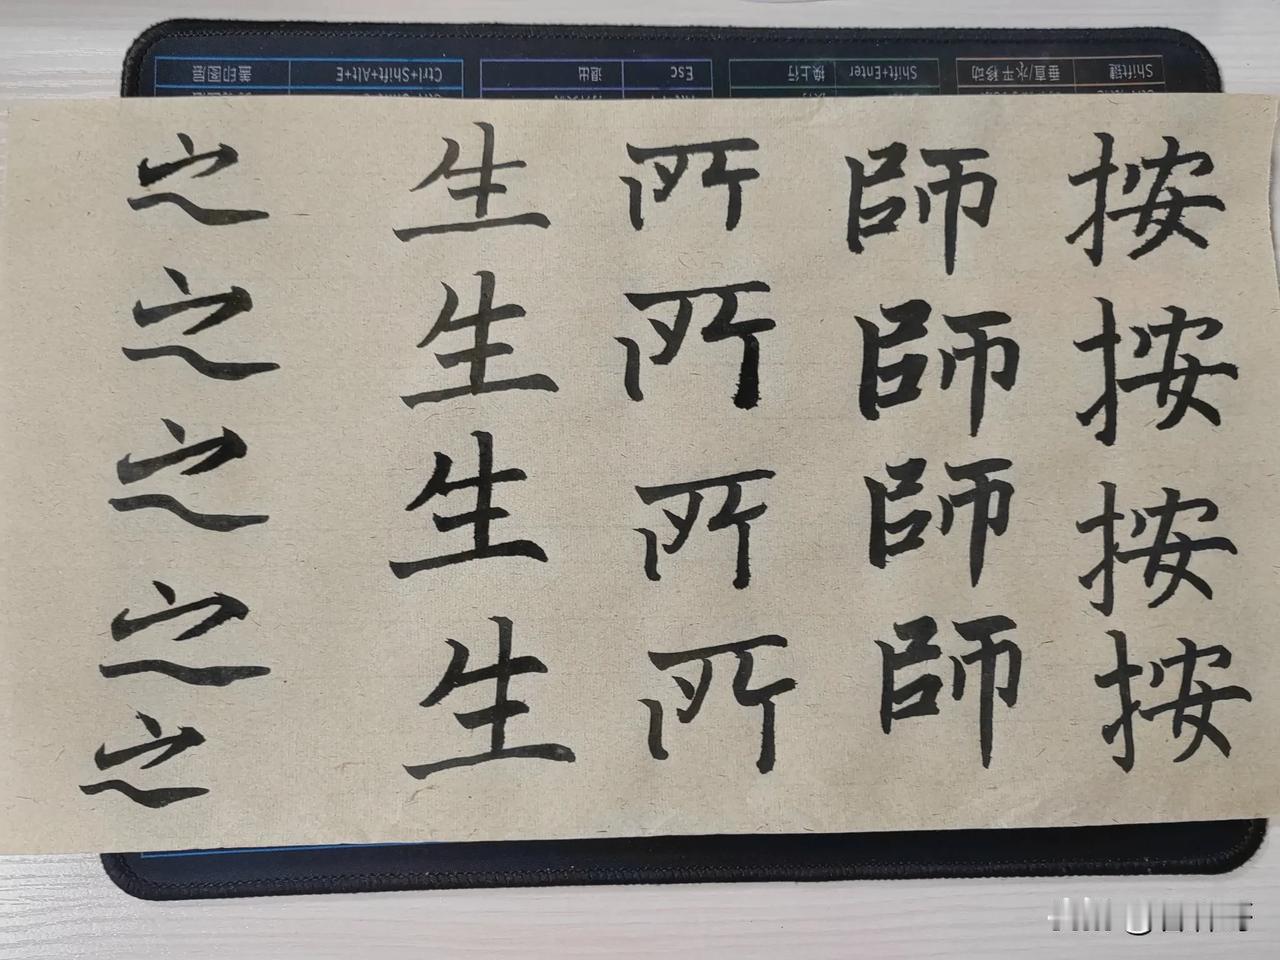 按按按按
師師師師
所所所所
生生生生
之之之之之
Shift键 垂直/水平移动
Shift+Enter 换上行
Esc 退出
Ctrl+Shift+Alt+E 盖印图层